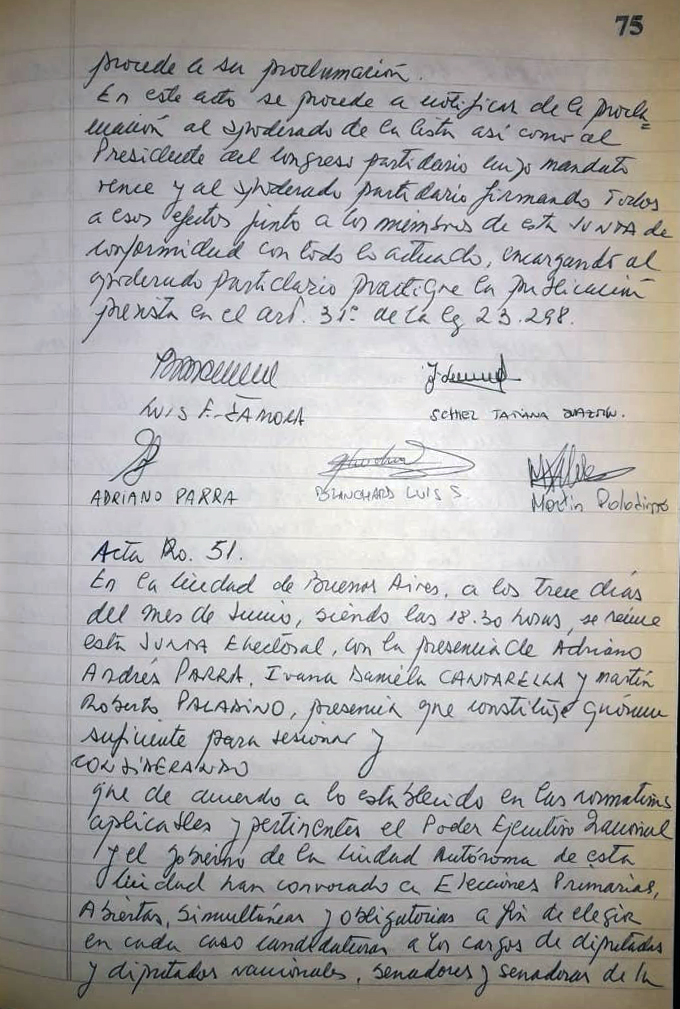 75
procede a su proclamación.
En este acto se procede a notificar de la procla=
mación al apoderado de la lista así como al
Presidente del Congreso partidario cuyo mandato
vence y al apoderado partidario firmando Todos
a esos efectos junto a los miembros de esta JUNTA de
conformidad con todo lo actuado, encargando al
apoderado partidario practique la publicación
prevista en el art. 31º de la ley 23.298.
LUIS F. ZAMORA
TATIANA
ADRIANO PARRA
BLANCHARD LUIS S.
Martín Paladino
Acta No. 51.
En la Ciudad de Buenos Aires, a los trece días
del mes de Junio, siendo las 18.30 horas, se reúne
esta JUNTA Electoral, con la presencia de Adriano
Andrés PARRA, Ivana Daniela CANTARELLA y Martín
Roberto PALADINO, presencia que constituye quórum
suficiente para sesionar y
CONSIDERANDO
que de acuerdo a lo establecido en las normativas
aplicables y pertinentes el Poder Ejecutivo Nacional
y el Gobierno de la Ciudad Autónoma de esta
Ciudad han convocado a Elecciones Primarias,
Abiertas, Simultáneas y Obligatorias a fin de elegir
en cada caso candidaturas a los cargos de diputadas
y diputados nacionales, senadores y senadoras de la